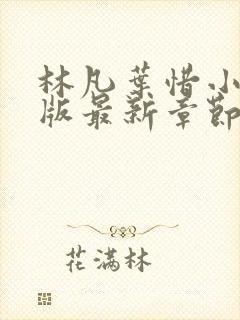 林凡葉惜小
版最新章節
花滿林